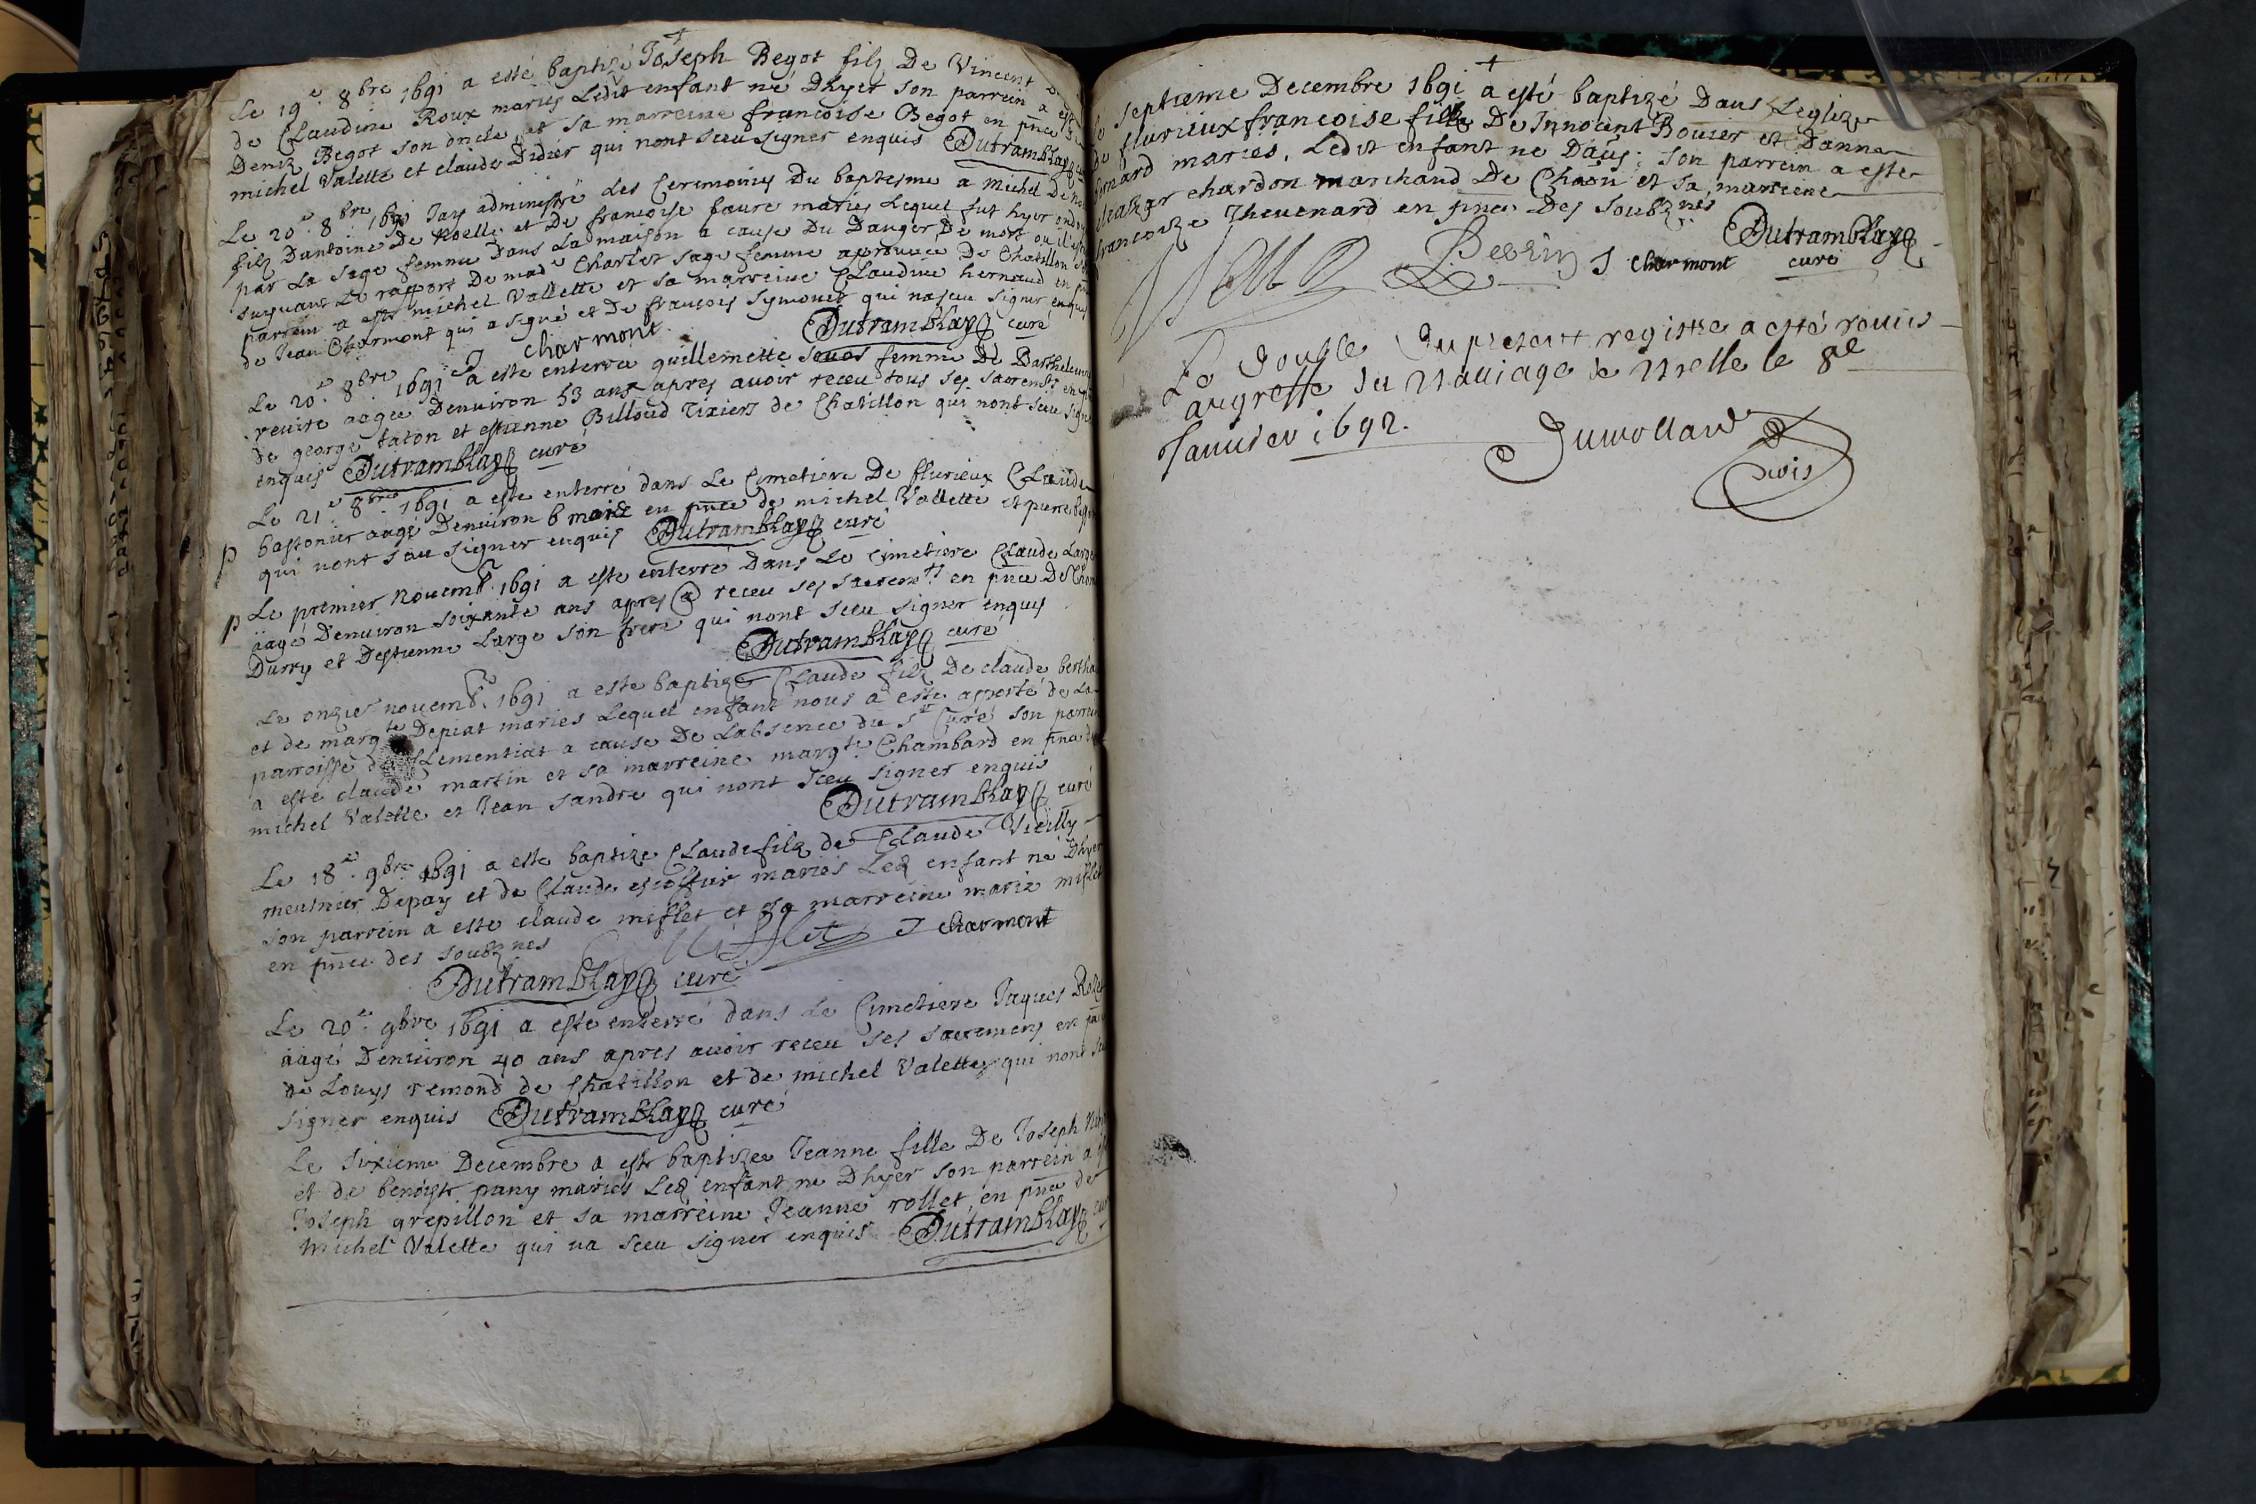 Le 19e 8bre 1691 a esté baptizé Joseph Begot filz De Vincent
de Claudine Roux mariés Ledit enfant né Dhyer son parrein a esté
Deniz Begot son oncle et sa marreine francoise Begot en pnce de
michel Valette et claude Didier qui nont sceu signer enquis Dutramblay
Le 20e 8bre 1691 Jay administré Les Ceremonies Du baptesme a michel De
filz Dantoine De Noelle et De francoise faure mariés Lequel fut hyer ondoyé
par La sage femme Dans La maison a cause Du Danger De mort ou il
suyvant Le rapport De made Charlet sage femme aprouvée De Chatillon
parrein a esté michel Vallette et sa marreine Claudine hernaud en
de Jean Charmont qui a signé et de francois Symonet qui na sceu signer enquis
J charmont Dutramblay curé
Le 20e 8bre 1691 a este enterrée guillemette femme De Barthelemy
aagée Denviron 53 ans apres avoir receu tous ses sacremts
de george taton et estienne Billoud Tixiers de Chatillon qui nont sceu signer
enquis Dutramblay curé
Le 21e 8bre 1691 a este enterré dans Le Cimetiere De flurieux Claude
bastonier aagé Denviron 6 mois en pnce de michel Vallette et
p qui nont sceu signer enquis Dutramblay curé
Le premier novembre 1691 a este enterré Dans Le Cimetiere Claude Large
p aagé Denviron soixante ans apres receu ses sacremts en pnce De
Durry et Destienne Large son frere qui nont sceu signer enquis
Dutramblay curé
Le onzies novemb. 1691 a este baptizé Claude filz De claude
et de margte Depiat mariés Lequel enfant nous a este aporté de La
parroisse de Clementiat a cause De Labsence du Sr Curé son parrein
a esté claude martin et sa marreine margte Chambard en pnce de
michel Valette et Jean sandre qui nont sceu signer enquis
Dutramblay curé
Le 18e 9bre 1691 a este baptize Claude filz de Claude Vieilly
meusnier Depay et de Claude mariés Led enfant né Dhyer
son parrein a este claude miflet et sa marreine marie miflet
en pnce des soubznes J charmont
Dutramblay curé
Le 20e 9bre 1691 a este enterré dans Le Cimetiere Jaques
aagé Denviron 40 ans apres avoir receu ses sacremens en
de Louys remond de Chatillon et de michel Valette qui nont
signer enquis Dutramblay curé
Le sixieme Decembre a este baptizée Jeanne fille De Joseph
et de benoiste pany mariés Led enfant né Dhyer son parrein a
Joseph grepillon et sa marreine Jeanne rollet en pnce de
michel Valette qui na sceu signer enquis Dutramblay
septieme Decembre 1691 a esté baptizé Dans Leglize
de flurieux francoise fille De Innocent Bouier et Danne
mariés. Ledit enfant né son parrein a este
chardon marchand De et sa marreine
francoize Thevenard en pnce Des soubznes
Dutramblay
J charmont curé
Le double du present registre a esté remis
au greffe du Bailiage de Bresse le 8e
Januier 1692.
Dumollard